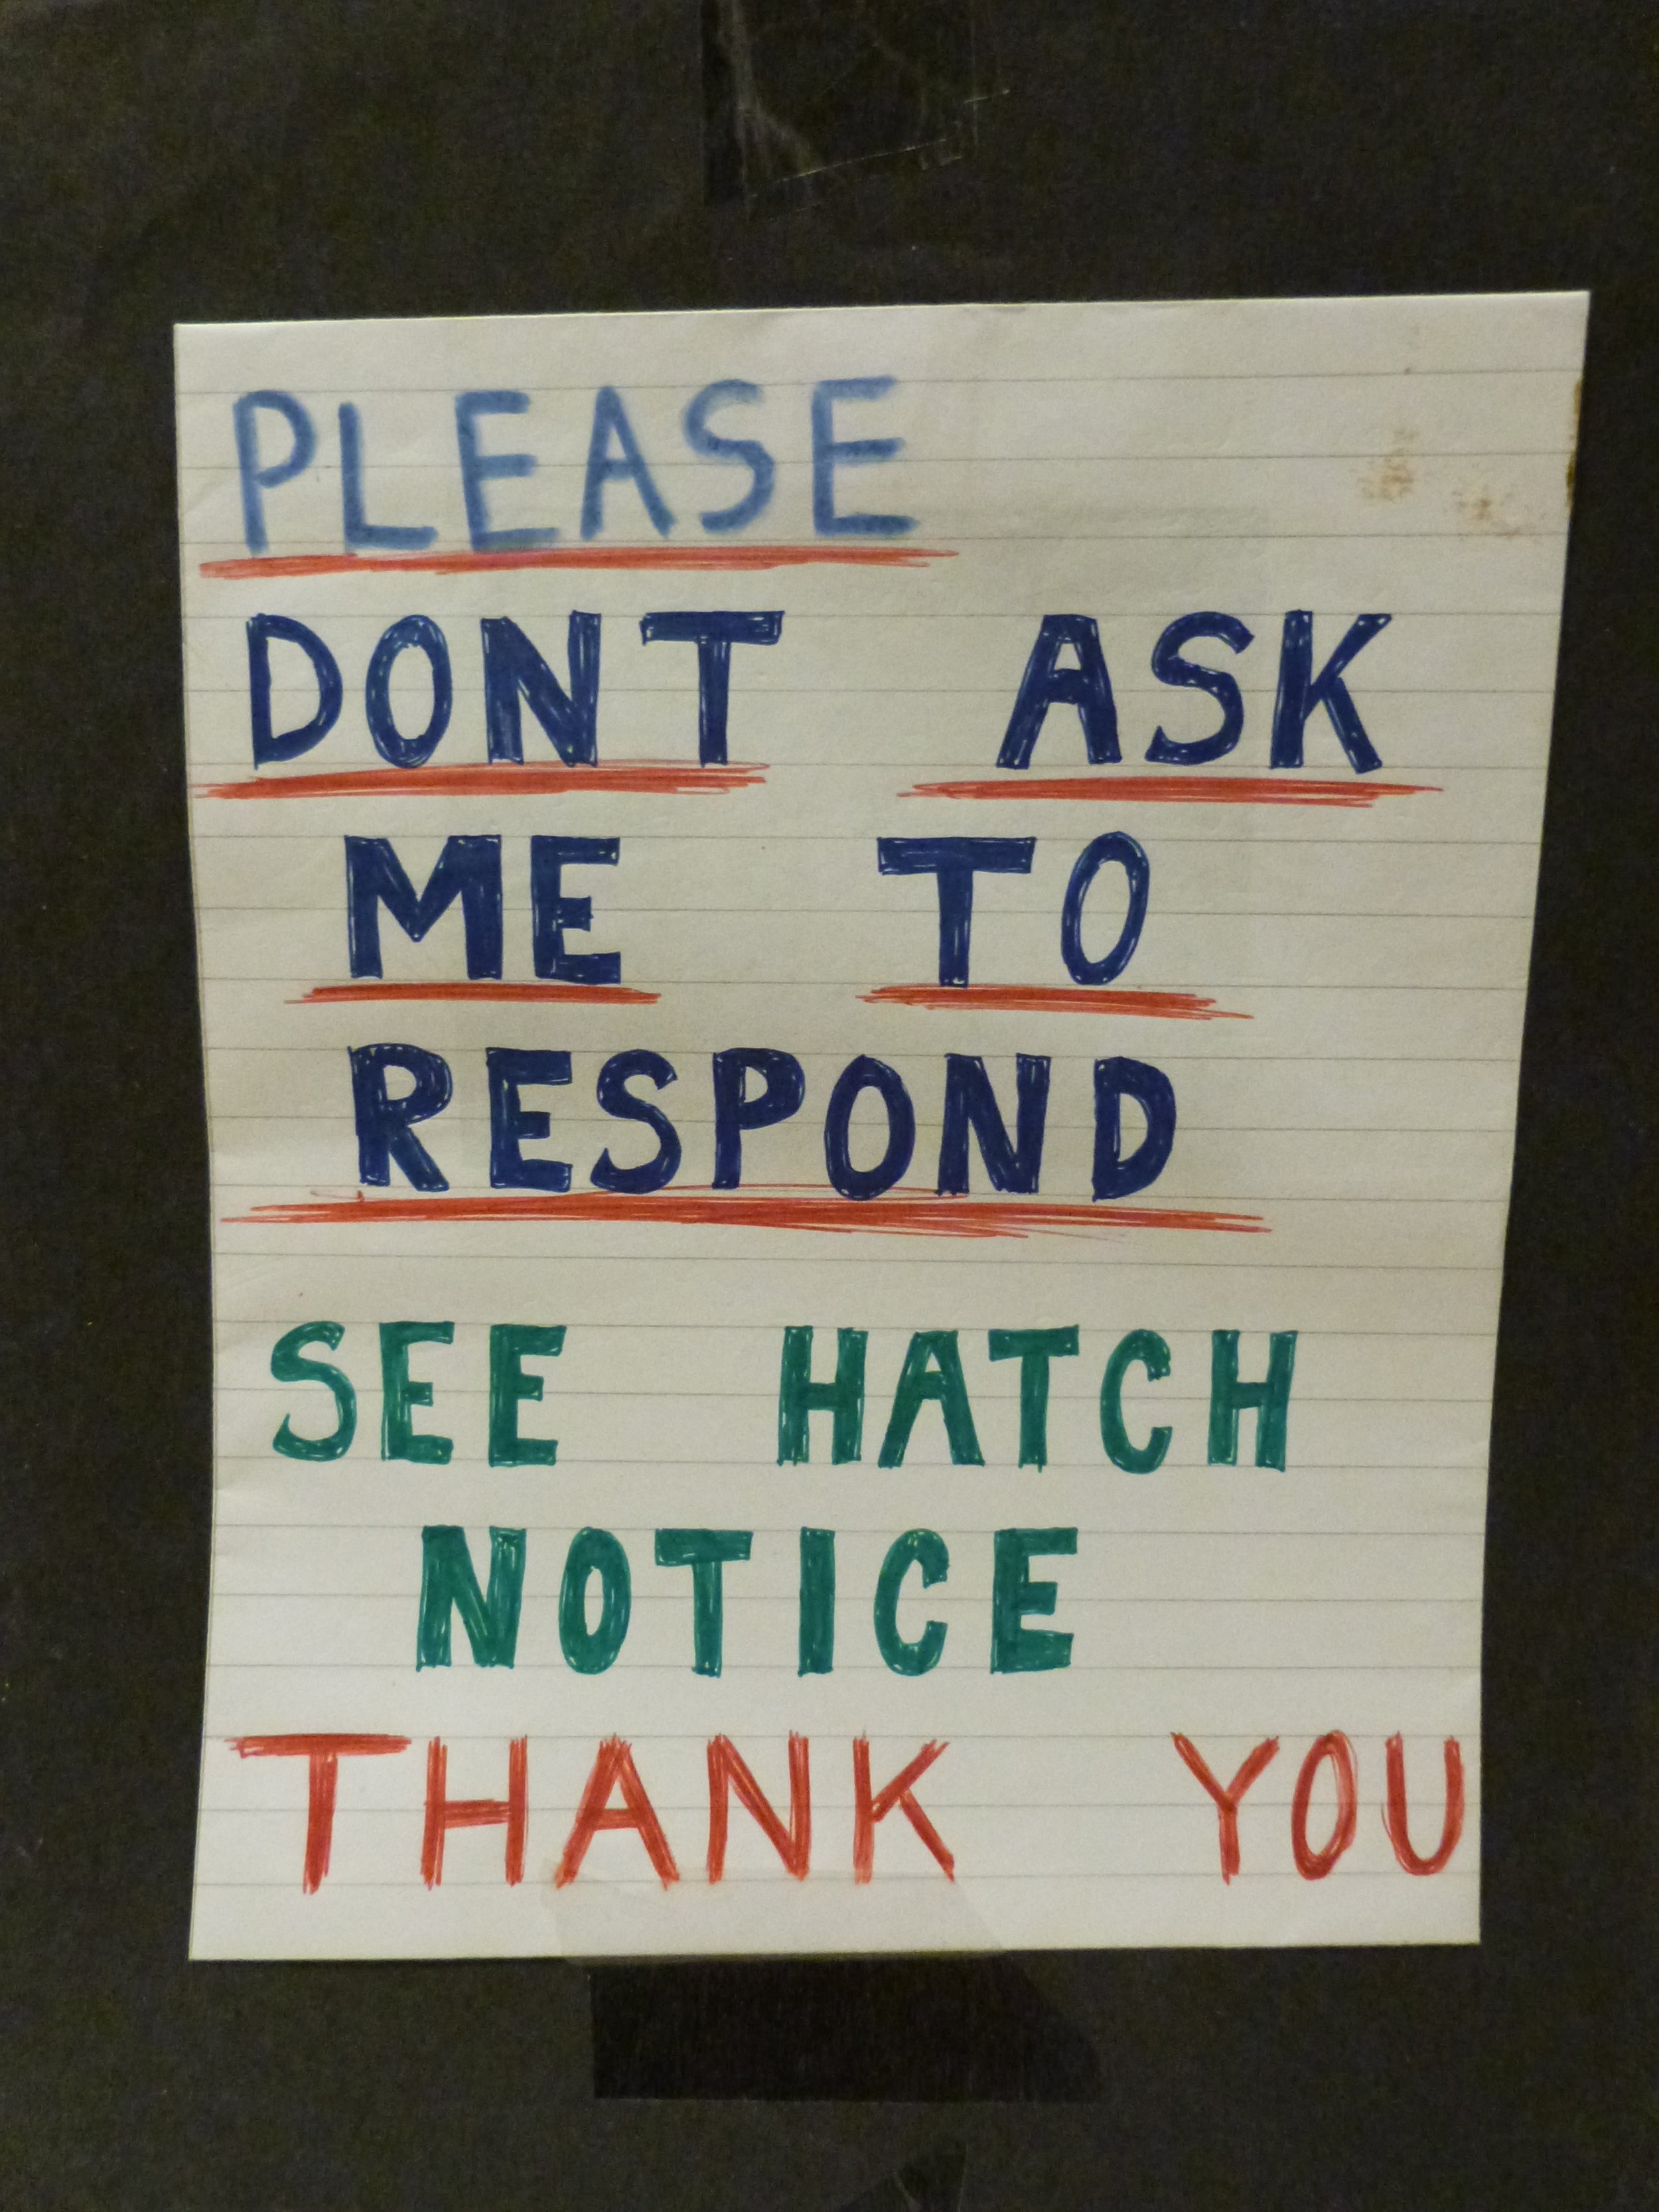 PLEASE
DONT ASK
ME TO
RESPOND
SEE HATCH
NOTICE
THANK YOU